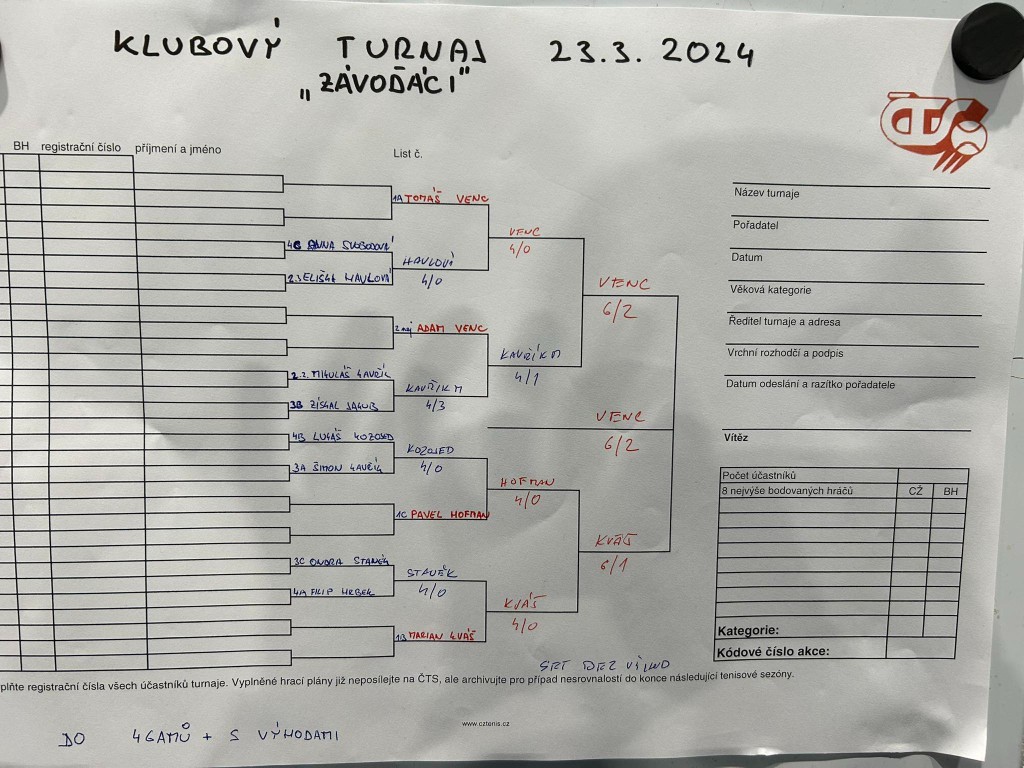 KLUBOVÝ TURNAJ 23.3.2024
„ZÁVOĎÁCI"
ČTS
BH registrační číslo příjmení a jméno List č.
1A TOMÁŠ VENC
VENC
4/0
4C ANNA SVOBODOVÁ
HAVLOVÁ
4/0
2.3 ELIŠKA HAVLOVÁ
VENC
6/2
2 nej ADAM VENC
KAVŘÍK M
4/1
2.2. MIKULÁŠ KAVŘÍK
KAVŘÍK M
4/3
3B ZÍSKAL JAKUB
VENC
6/2
4B LUKÁŠ KOZOJED
KOZOJED
4/0
3A ŠIMON KAVŘÍK
HOFMAN
4/0
1C PAVEL HOFMAN
KVÁŠ
6/1
3C ONDRA STANĚK
STANĚK
4/0
4A FILIP HRBEK
KVÁŠ
4/0
1B MARIAN KVÁŠ
SET BEZ VÝHOD
Název turnaje
Pořadatel
Datum
Věková kategorie
Ředitel turnaje a adresa
Vrchní rozhodčí a podpis
Datum odeslání a razítko pořadatele
Vítěz
Počet účastníků
8 nejvýše bodovaných hráčů CŽ BH
Kategorie:
Kódové číslo akce:
plňte registrační čísla všech účastníků turnaje. Vyplněné hrací plány již neposílejte na ČTS, ale archivujte pro případ nesrovnalostí do konce následující tenisové sezóny.
www.cztenis.cz
DO 4 GAMŮ + S VÝHODAMI